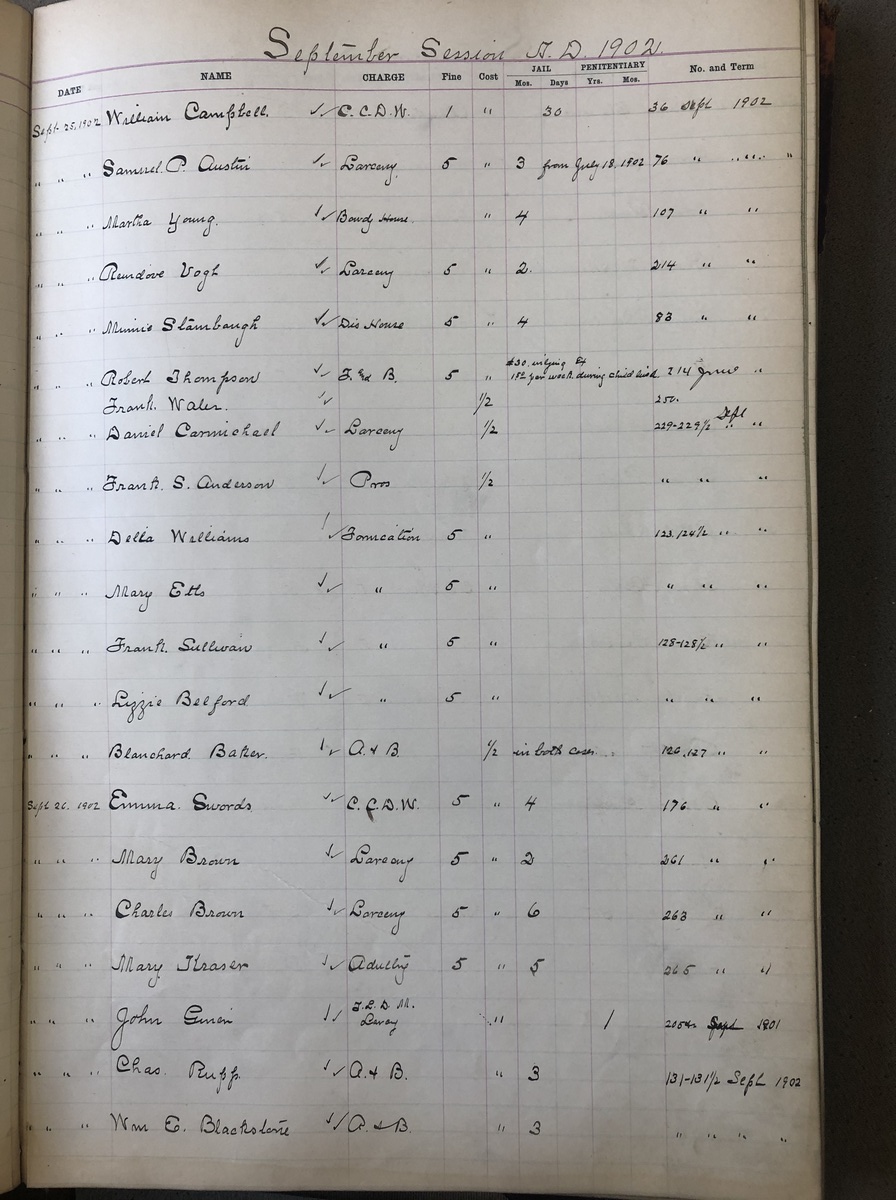 September Session A.D. 1902.
DATE NAME CHARGE Fine Cost JAIL PENITENTIARY No. and Term
Mos. Days Yrs. Mos.
Sept. 25, 1902 William Campbell. C.C.D.W. 1 " 30 36 Sept 1902
" " " Samuel P. Austin Larceny. 5 " 3 from July 18, 1902 76 " " "
" " " Martha Young. Bawdy House " 4 107 " "
" " " Vogh Larceny 5 " 2. 214 " "
" " " Minnie Stambaugh Dis House 5 " 4 83 " "
" " " Robert Thompson F. & B. 5 " $30. lying Ex
per week during child 214 June "
Frank Waler. 1/2 250.
" " " Daniel Carmichael Larceny 1/2 229-229 1/2 Sept " "
" " " Frank S. Anderson Pros 1/2 " " "
" " " Della Williams Fornication 5 " 123.124 1/2 " "
" " " Mary Etts " 5 " " " "
" " " Frank Sullivan " 5 " 128-128 1/2 " "
" " " Lizzie Belford " 5 " " " "
" " " Blanchard Baker. A. & B. 1/2 in both cases. 126,127 " "
Sept 26. 1902 Emma Swords C.C.D.W. 5 " 4 176 " "
" " " Mary Brown Larceny 5 " 2 261 " "
" " " Charles Brown Larceny 5 " 6 263 " "
" " " Mary Kraser Adultry 5 " 5 265 " "
" " " John " 1 Sept 1901
" " " Chas. Rupp. A. & B. " 3 131-131 1/2 Sept 1902
" " " Wm E. Blackstone A. & B. " 3 " " " "